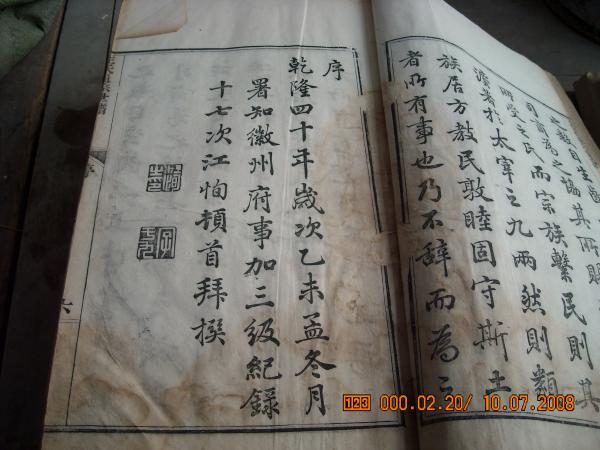 之民而宗族繫民則其
者於太宰之九兩然則類
族居方教民敦睦固守斯土
者所有事也乃不辭而為之
序
乾隆四十年歲次乙未孟冬月
署知徽州府事加三級紀錄
十七次江恂頓首拜撰
序
六
123 000.02.20/ 10.07.2008